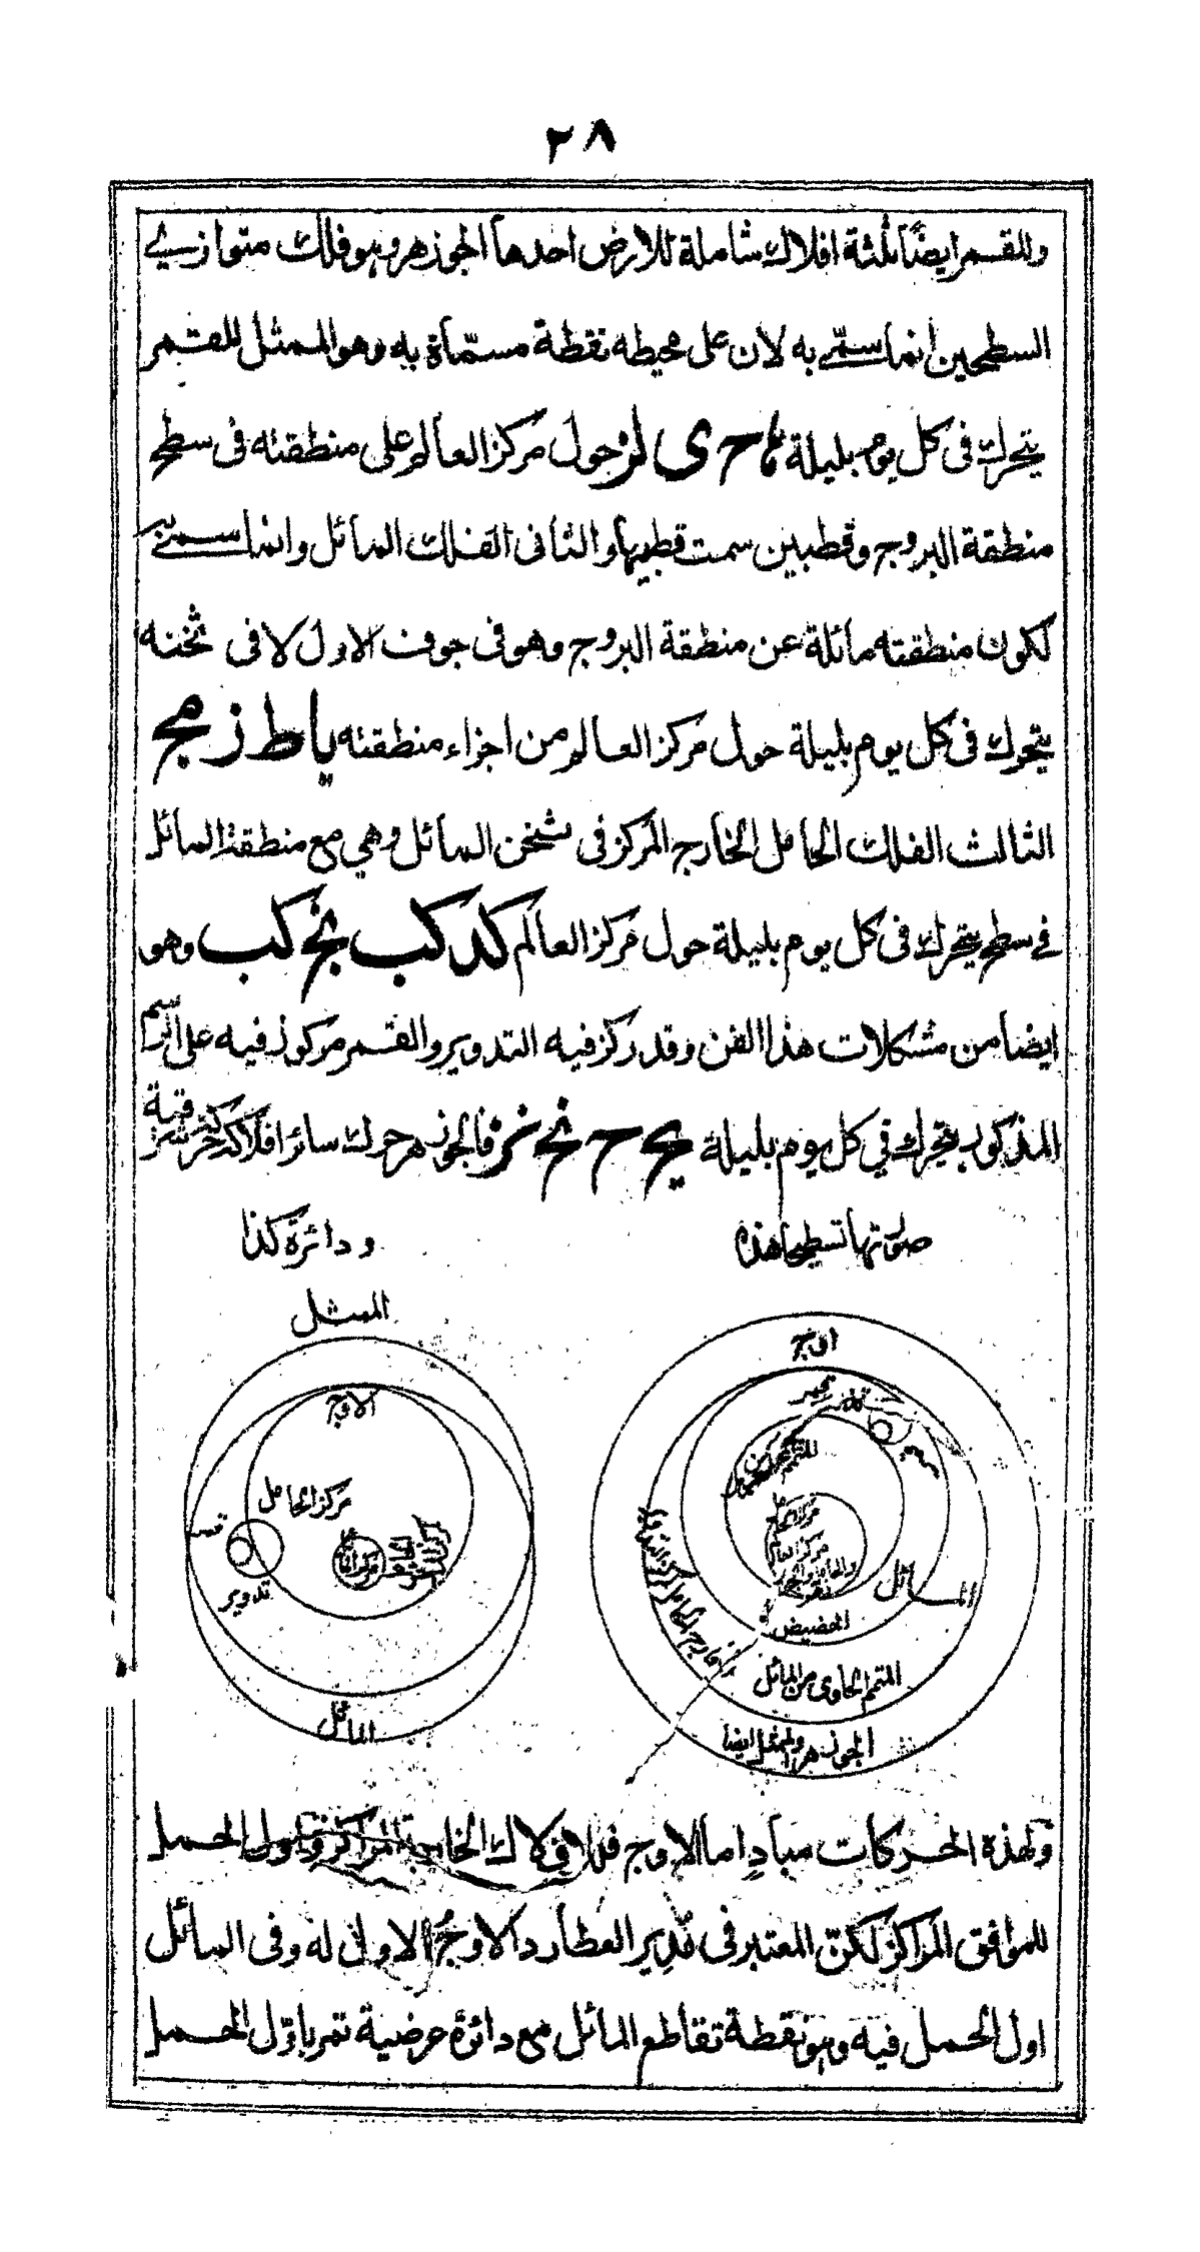 ٢٨
وللقمر ايضًا ثلثة افلاك شاملة للارض احدها الجوزهر وهو فلك متوازي
السطحين انما سمّي به لان على محيطه نقطة مسمّاة به وهو الممثل للقمر
يتحرك فى كل يوم بليلة ح ى لز حول مركز العالم على منطقته فى سطح
منطقة البروج وقطبين سمت قطبيها والثانى الفلك المائل وانما سمي به
لكون منطقته مائلة عن منطقة البروج وهو فى جوف الاول لا فى ثخنه
يتحرك فى كل يوم بليلة حول مركز العالم من اجزاء منطقته يا ط ز مج
الثالث الفلك الحامل الخارج المركز فى ثخن المائل وهي مع منطقة المائل
في سطح يتحرك فى كل يوم بليلة حول مركز العالم كد كب نج كب وهو
ايضا من مشكلات هذا الفن وقد ركز فيه التدوير والقمر مركوز فيه على الرسم
المذكور يتحرك في كل يوم بليلة يج ح نح نز فالجوزهر حرك سائر افلاكه
صورتها تسطيحا هذه
ودائرة كذا
الممثل
اوج
الاوج
مركز الحامل
تدوير
المائل
الحضيض
المتمم الحاوى من المائل
الجوزهر والممثل ايضا
المائل
ولهذه الحركات مبادٍ اما الاوج فللافلاك الخارجة المراكز واول الحمل
للموافق المراكز لكنّ المعتبر فى مدير العطارد الاوجُ الاول له وفى المائل
اول الحمل فيه وهو نقطة تقاطع المائل مع دائرة عرضية تمر باوّل الحمل